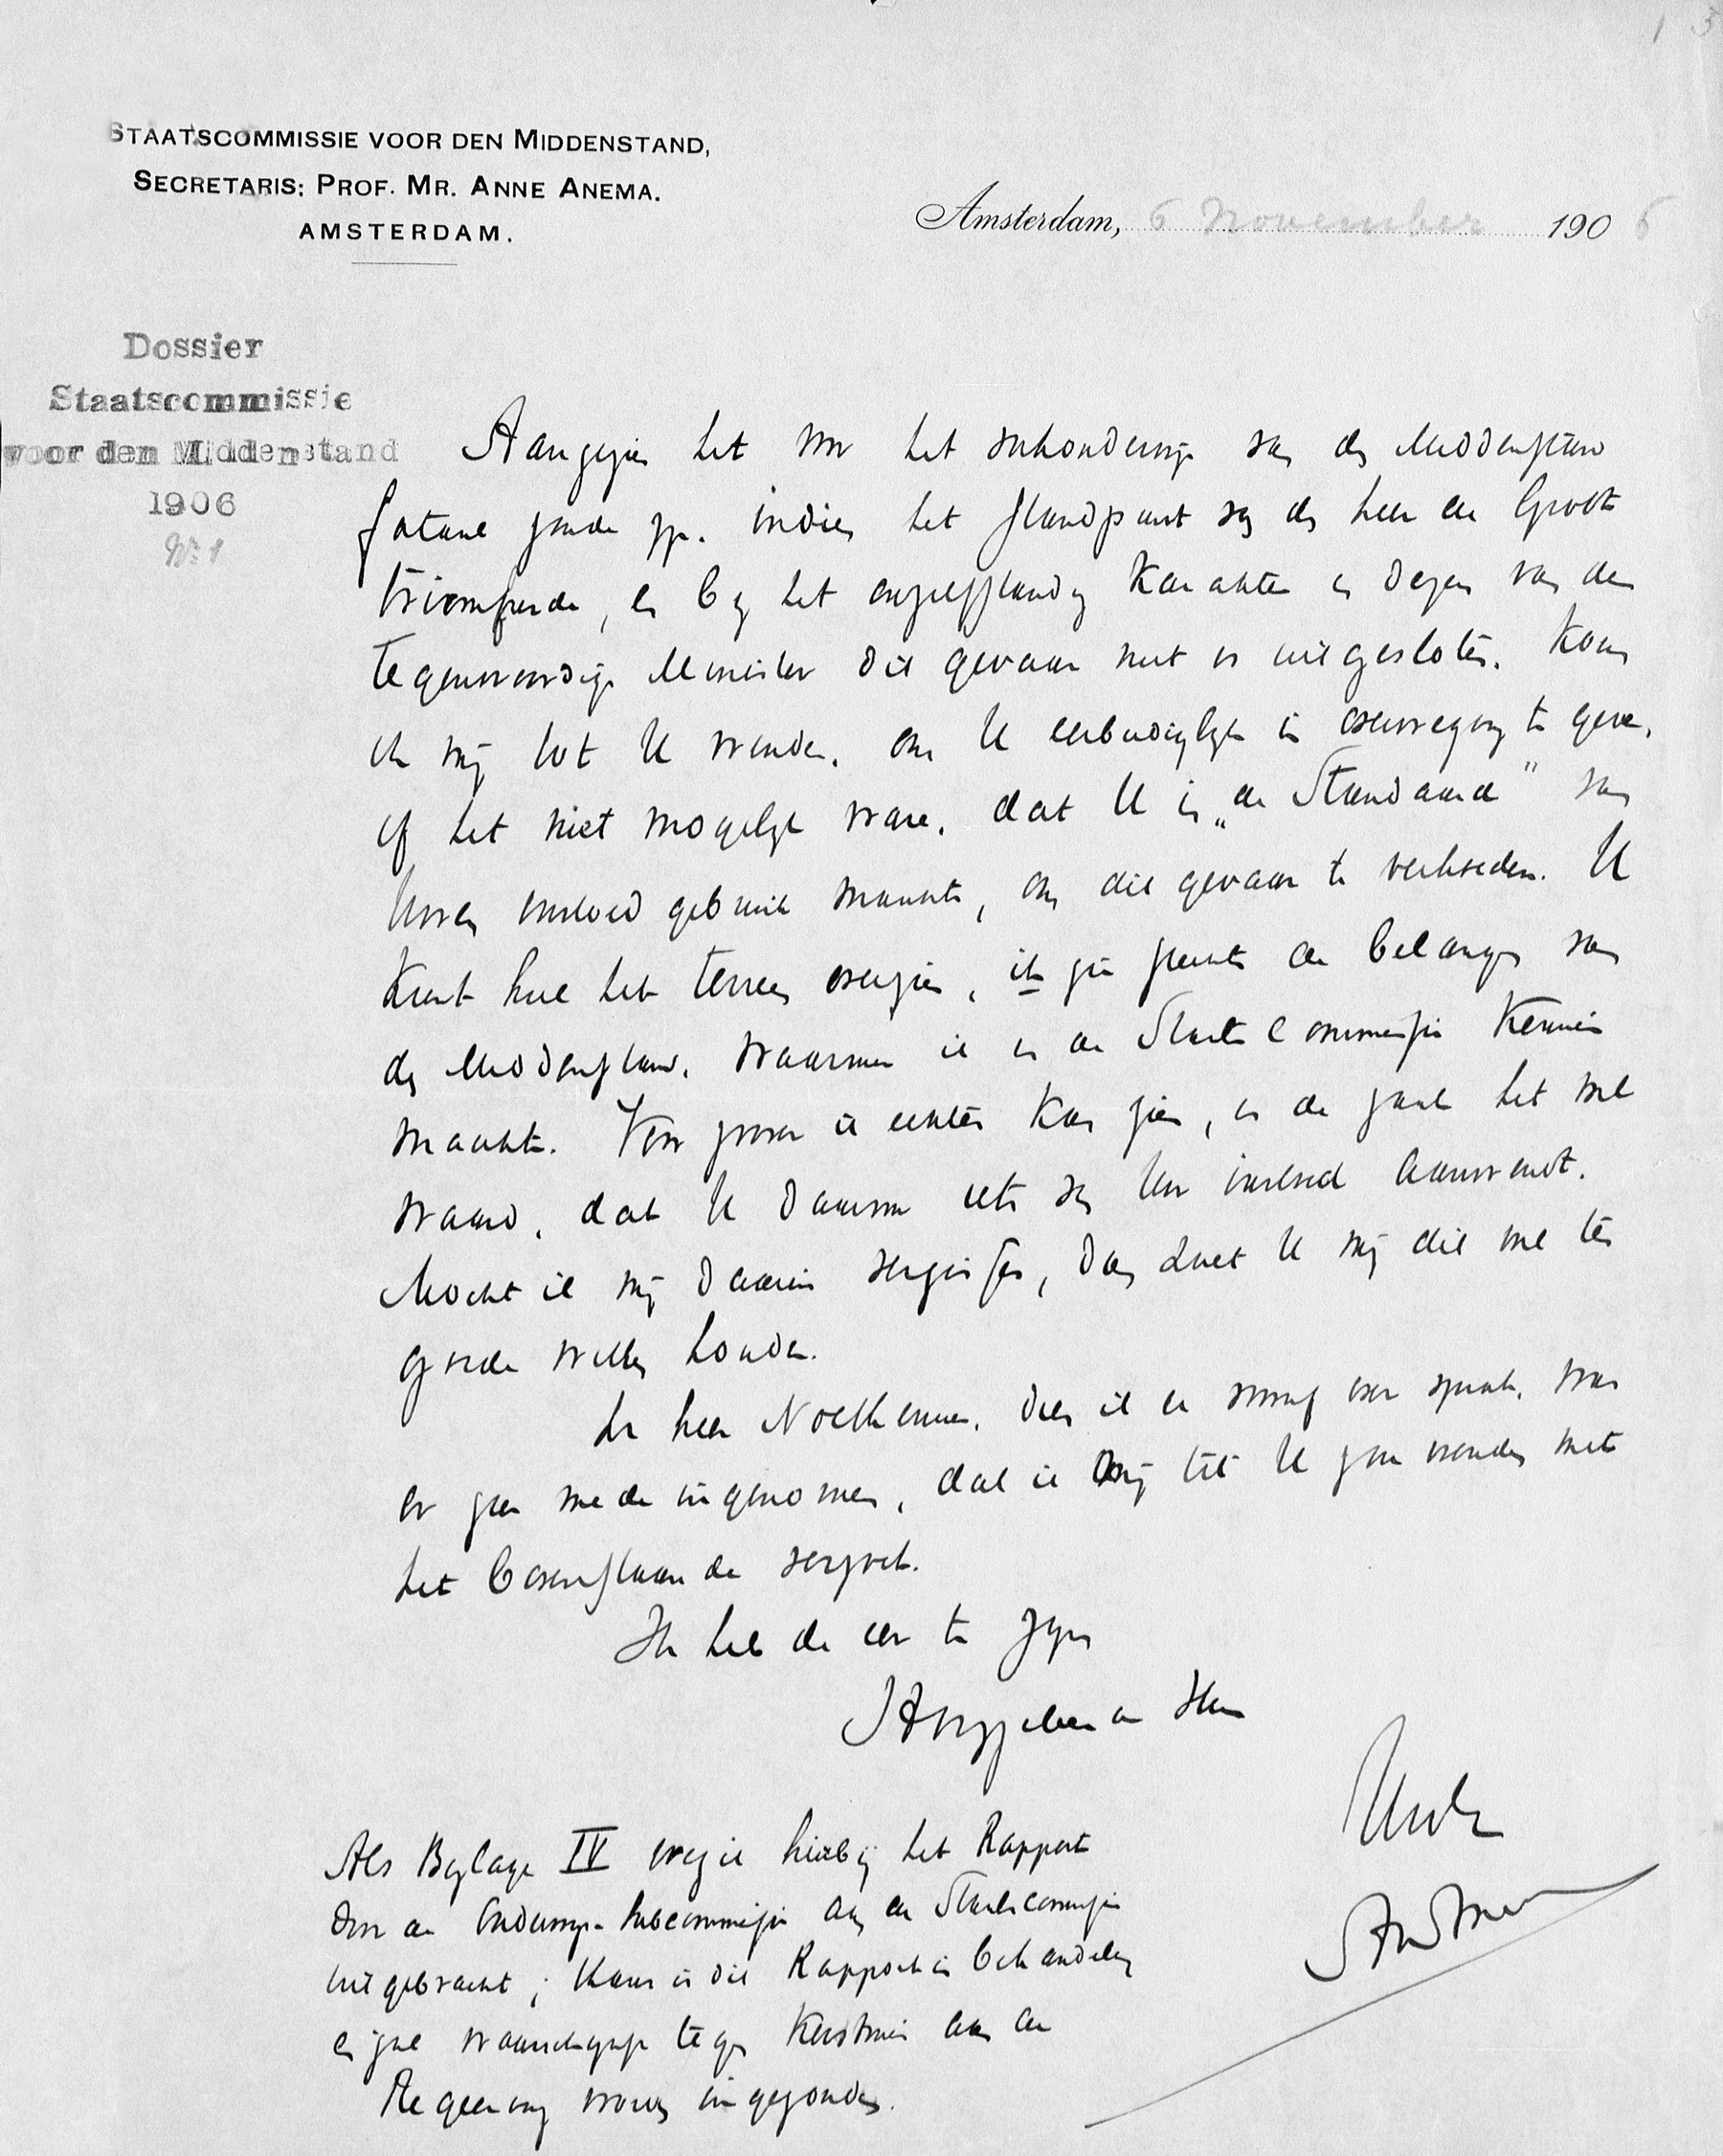 STAATSCOMMISSIE VOOR DEN MIDDENSTAND,
SECRETARIS: PROF. MR. ANNE ANEMA.
AMSTERDAM.
Amsterdam, 6 November 1906
Dossier
Staatscommissie
voor den Middenstand
1906
No 1
Aangezien het voor het onderwijs van den Middenstand
fataal zoude zijn indien het standpunt van den heer de Groot
triomfeerde, en bij het karakter en van den
tegenwoordige Minister dit gevaar niet is uitgesloten. Kom
ik mij tot U wenden, om U eerbiediglijk in overweging te geven,
of het niet mogelijk ware, dat U in „de Standaard" van
Uwen invloed gebruik maakte, om dit gevaar te verhoeden. U
kunt heel het terrein overzien, ik zie slechts de belangen van
den Middenstand, waarmee ik in de Staatscommissie kennis
maakte. Voor zoover ik echter kan zien, is de zaak het wel
waard, dat U daarvoor iets van Uw invloed aanwendt.
Mocht ik mij daarin vergissen, dan zult U mij dit wel ten
goede willen houden.
De heer Nolthenius, dien ik er vooraf over sprak, was
er zeer mede ingenomen, dat ik mij tot U zou wenden met
het bovenstaande verzoek.
Ik heb de eer te zijn
Hooggeleerde Heer
Uwdr
AAnema
Als Bijlage IV voeg ik hierbij het Rapport
door de Onderwijs-Subcommissie aan de Staatscommissie
uitgebracht; thans is dit Rapport in behandeling
en zal waarschijnlijk tegen Kerstmis aan de
Regeering worden ingezonden.